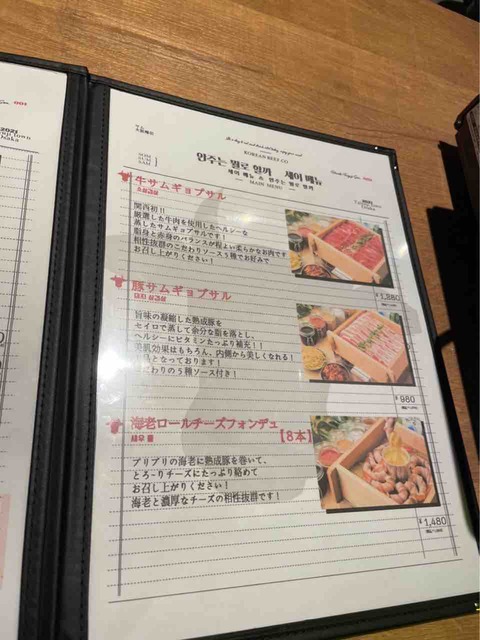 KOREAN BEEF CO
안주는 뭘로 할까 새이 메뉴
새이 메뉴 & 안주는 뭘로 할까
MAIN MENU
牛サムギョプサル
関西初!!
厳選した牛肉を使用したヘルシーな
蒸したサムギョプサルです!
脂身と赤身のバランスが程よい柔らかなお肉です
相性抜群のこだわりソース5種でお好みで
お召し上がりください!
¥1,280
豚サムギョプサル
돼지 삼겹살
旨味の凝縮した熟成豚を
セイロで蒸して余分な脂を落とし、
ヘルシーにビタミンたっぷり補充!!
美肌効果はもちろん、内側から美しくなれる!
となっております!
こだわりの5種ソース付き!
¥980
海老ロールチーズフォンデュ
새우 롤
【8本】
プリプリの海老に熟成豚を巻いて、
とろ〜りチーズにたっぷり絡めて
お召し上がりください!
海老と濃厚なチーズの相性抜群です!
¥1,480